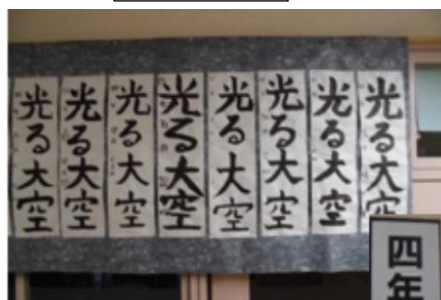 光る大空
光る大空
光る大空
光る大空
光る大空
光る大空
光る大空
光る大空
四年